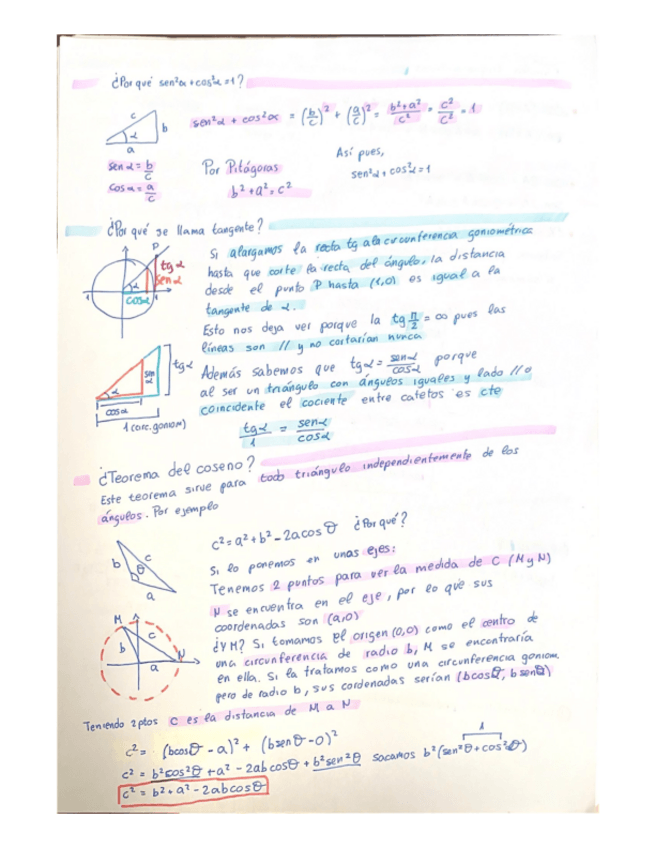 ¿Por qué sen²α + cos²α = 1?
c
b
α
a
sen²α + cos²α = (b/c)² + (a/c)² = b²+a²/c² = c²/c² = 1
sen α = b/c
cos α = a/c
Por Pitágoras
b² + a² = c²
Así pues,
sen²α + cos²α = 1
¿Por qué se llama tangente?
P
tg α
sen α
α
cos α
1
1
Si alargamos la recta tg a la circunferencia goniométrica
hasta que corte la recta del ángulo, la distancia
desde el punto P hasta (1,0) es igual a la
tangente de α.
Esto nos deja ver porque la tg π/2 = ∞ pues las
líneas son // y no cortarían nunca
sen α
tg α
α
cos α
1 (circ. goniom)
Además sabemos que tg α = sen α/cos α porque
al ser un triángulo con ángulos iguales y lado // o
coincidente el cociente entre catetos es cte
tg α/1 = sen α/cos α
¿Teorema del coseno?
Este teorema sirve para todo triángulo independientemente de los
ángulos. Por ejemplo
b
c
θ
a
c² = a² + b² - 2acos θ ¿Por qué?
Si lo ponemos en unas ejes:
Tenemos 2 puntos para ver la medida de C (M y N)
N se encuentra en el eje, por lo que sus
coordenadas son (a,0)
M
c
b
N
a
¿Y M? Si tomamos el origen (0,0) como el centro de
una circunferencia de radio b, M se encontraría
en ella. Si la tratamos como una circunferencia goniom.
pero de radio b, sus cordenadas serían (bcosθ, bsenθ)
Teniendo 2 ptos C es la distancia de M a N
c² = (bcosθ - a)² + (bsenθ - 0)²
c² = b²cos²θ + a² - 2abcosθ + b²sen²θ sacamos b²(sen²θ + cos²θ)
1
c² = b² + a² - 2abcosθ